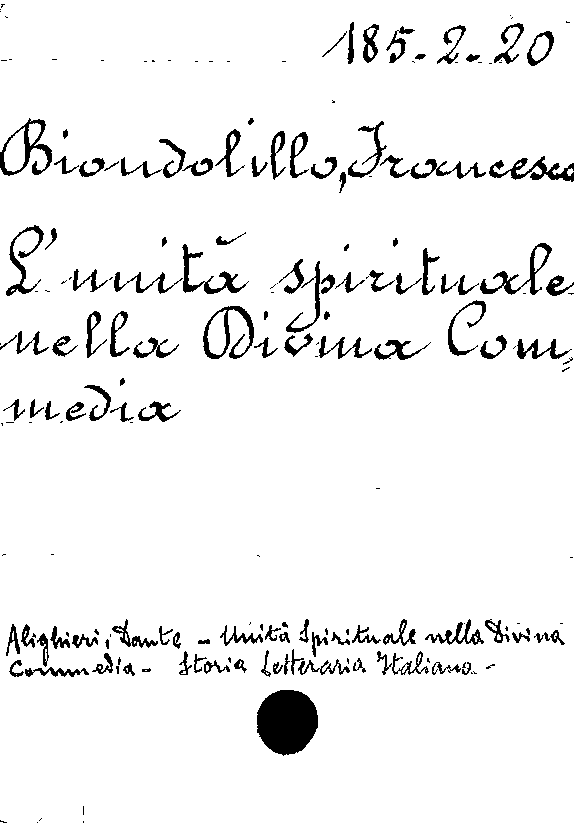 185-2-20
Biondolillo, Francesco
L'unità spirituale
nella Divina Com=
media
Alighieri, Dante - Unità Spirituale nella Divina
Commedia - Storia Letteraria Italiana -